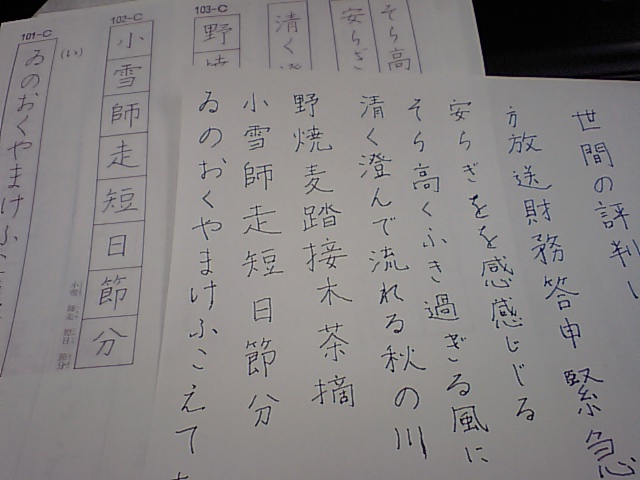 世間の評判し
方放送財務答申緊急
安らぎをを感感じじる
そら高くふき過ぎる風に
清く澄んで流れる秋の川
野焼麦踏接木茶摘
小雪師走短日節分
ゐのおくやまけふこえて
そら高
安らぎ
清く
103-C
野焼
102-C
小雪師走短日節分
小雪 師走 短日 節分
101-C
(い)
ゐのおくやまけふ